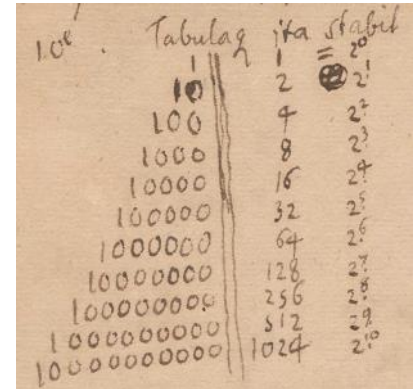 10ᵉ. Tabulaq ita stabit
1 1 = 2⁰
10 2 2¹
100 4 2²
1000 8 2³
10000 16 2⁴
100000 32 2⁵
1000000 64 2⁶
10000000 128 2⁷
100000000 256 2⁸
1000000000 512 2⁹
10000000000 1024 2¹⁰